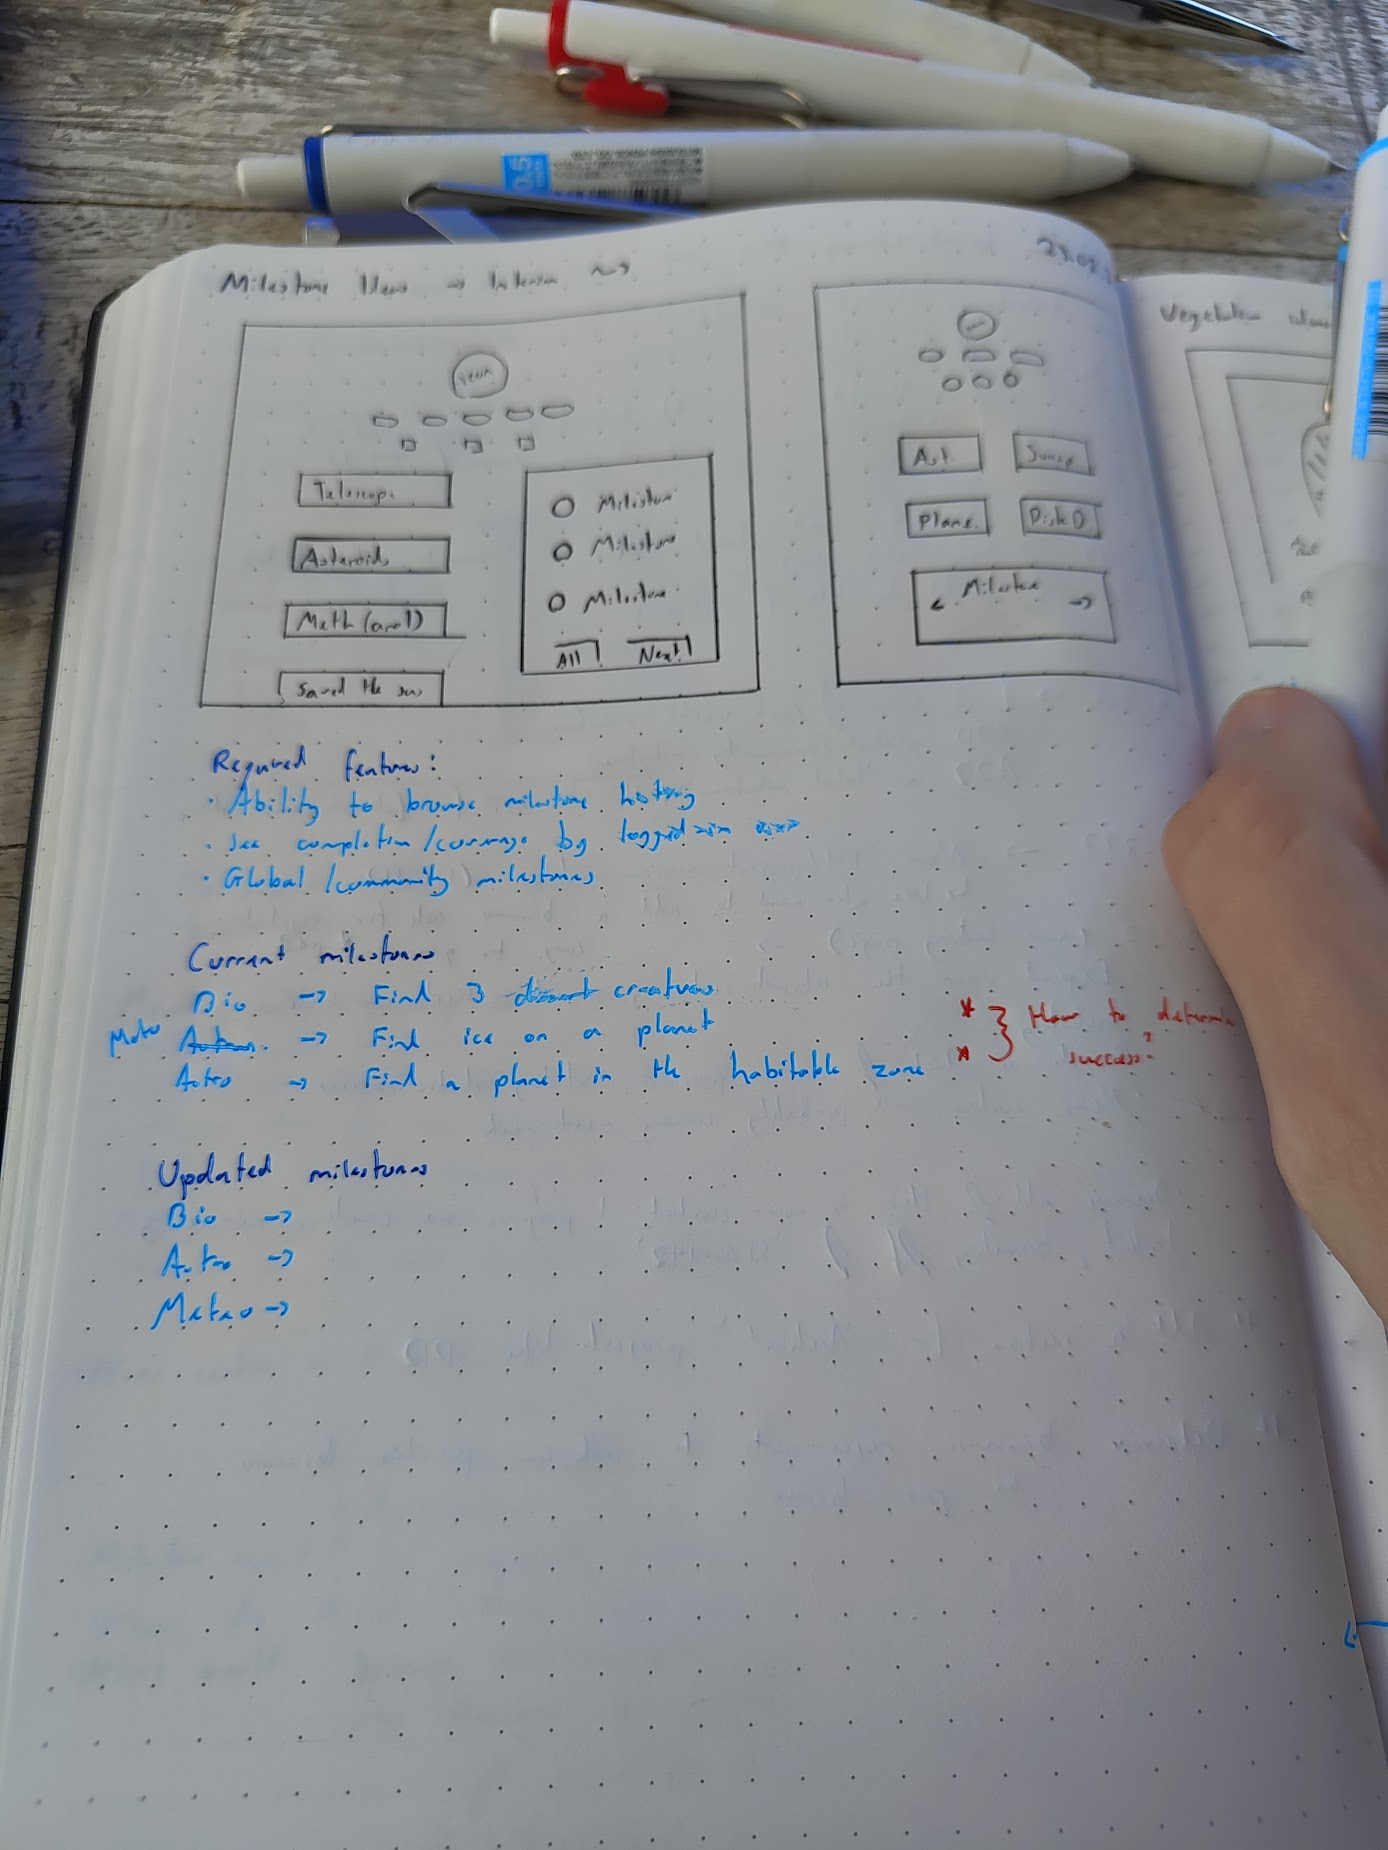 0.5
Milestone View →
Telescope
Asteroids
Meth (
Saved the
Milestone
Milestone
Milestone
All Next
Ast.
Plane.
Milestone
← →
Required features:
· Ability to browse milestone history
· See completion/coverage by logged in user
· Global/community milestones
Current milestones
Bio → Find 3 creatures
Meteo → Find ice on a planet
Astro → Find a planet in the habitable zone
* * } How to determine
success?
Updated milestones
Bio →
Astro →
Meteo →
Vegetation